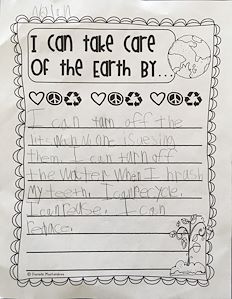 I can take care
Of the Earth BY...
I can turn off the
lits wen no one is uesing
them. I can turn off
the water when I brush
My teeth. I can recycle.
I can reuse. I can
reduce.